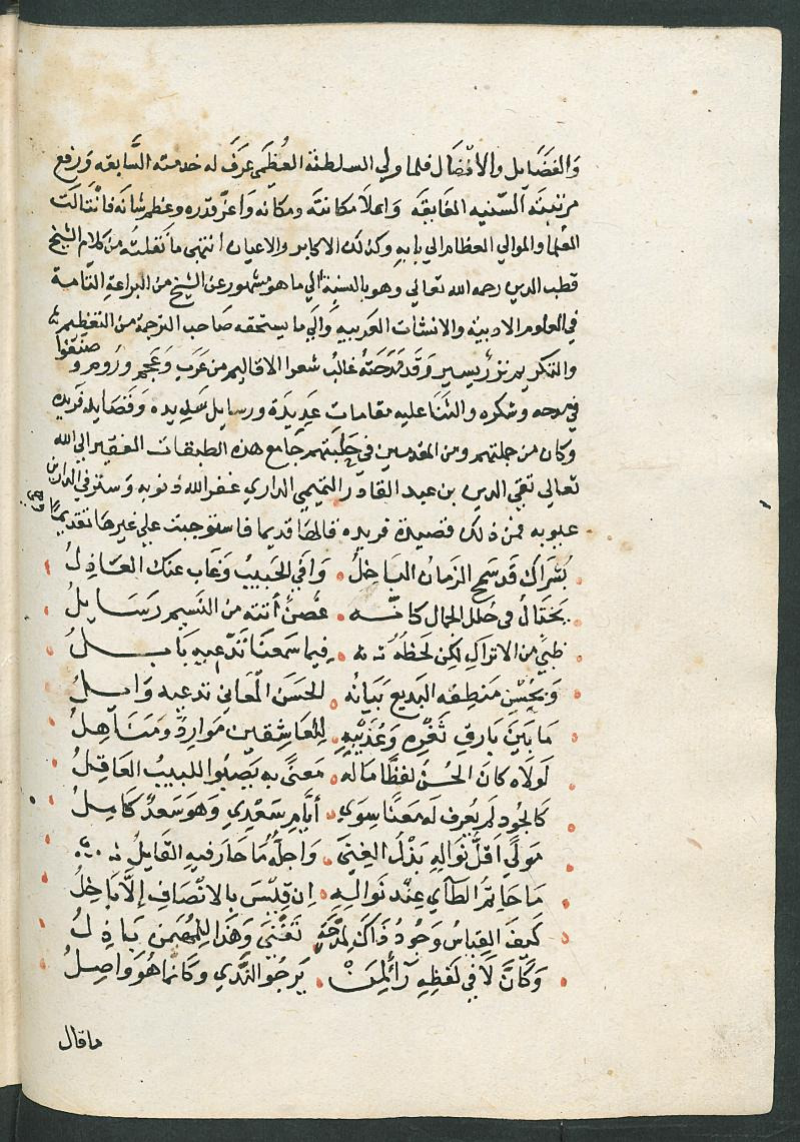 والفضَائل والافضَال فلما ولي السلطنة العُظمَى عَرَفَ له خدمته السَّابقه وَرفع
مرتبته السّنيه الفَايقَه وَاعلاَ مكانته ومكانه وَاعزّ قدره وعظم شانه فانثالت
العُلما والموالي العظام الي بابهِ وكذلك الاكابر والاعيان انتهى ما نَقلتُه من كلام الشيخ
قطب الدين رحمه الله تعالي وهو بالنسبة الي ما هو مشهور عن الشيخ من البراعة التامة
في العلوم الادبية والانشات العربيه وَالَي ما يستحقه صاحب الترجمة من التعظيم
والتكريم نزر يسير وَقد مَدَحَتهُ غالبُ شعرا الاقاليم من عَرَبٍ وَعَجمٍ ورُومٍ و صنّفوا
في مدحه وشكره والثنَا عليه مقامات عَدِيدَة ورسايل سَدِيده وَفضَايل فريده
وَكان من جملتهم ومن المقدمين في حَلبَتهم جَامع هذه الطبقات الفقير الي الله
تعالي تقي الدين بن عبد القادر التميمي الداري غفر الله ذنوبه وَستر في الدارين
عيوبه فمن ذلك قصيدة فريده قالها قديما فاستوجبت علي غيرها تقديما وهي
بُشراكَ قد سَمح الزمان البَاخِلُ • وَافي الحَبيبُ وَغاب عنك العَاذِلُ
يَختَالُ في حُلل الجمال كانَّه • غُصنٌ أتته من النَّسيم رسَايلُ
ظبيٌ من الاتراكِ لكن لَحظُهُ • فيما سَمعنَا تَدّعيهِ بَابلُ
وَبحُسن مَنطِقه البَديع بَيَانُه • لحَسَن المعَاني تدعيه وَايلُ
مَا بَينَ بَارِقِ ثَغْرهِ وَعُذَيبهِ • للعَاشقين مَوارِدٌ ومَنَاهِلُ
لولاه كانَ الحُسنُ لفظًا ماله • مَعنًى به يَصبُوا للبيبُ العَاقلُ
كالجُود لم يُعرف لَه مَعنًا سِوَي • أيَّامِ سَعْدِي وَهوَ سَعدٌ كامِلُ
مَولًي اَقلّ نَوَالهِ بَذلُ الغِنَي • وَاجلّهُ مَا حَار فيهِ القَايلُ
مَا حَاتِمُ الطَّآي عِنْد نَوالهِ • اِن قِيْسَ بالانْصَاف إلاَّ بَاخِلُ
كَيفَ القياسُ وَجُودُ ذَاكَ لمِدحَةٍ • تفْنَى وَهَذا للمُهَيمن بَاذِلُ
وَكَانَّ لَا في لَفظِهِ رَآءٌ لمنْ • يَرجُو النَّدَي وَكانما هُوَ وَاصِلُ
ما قال